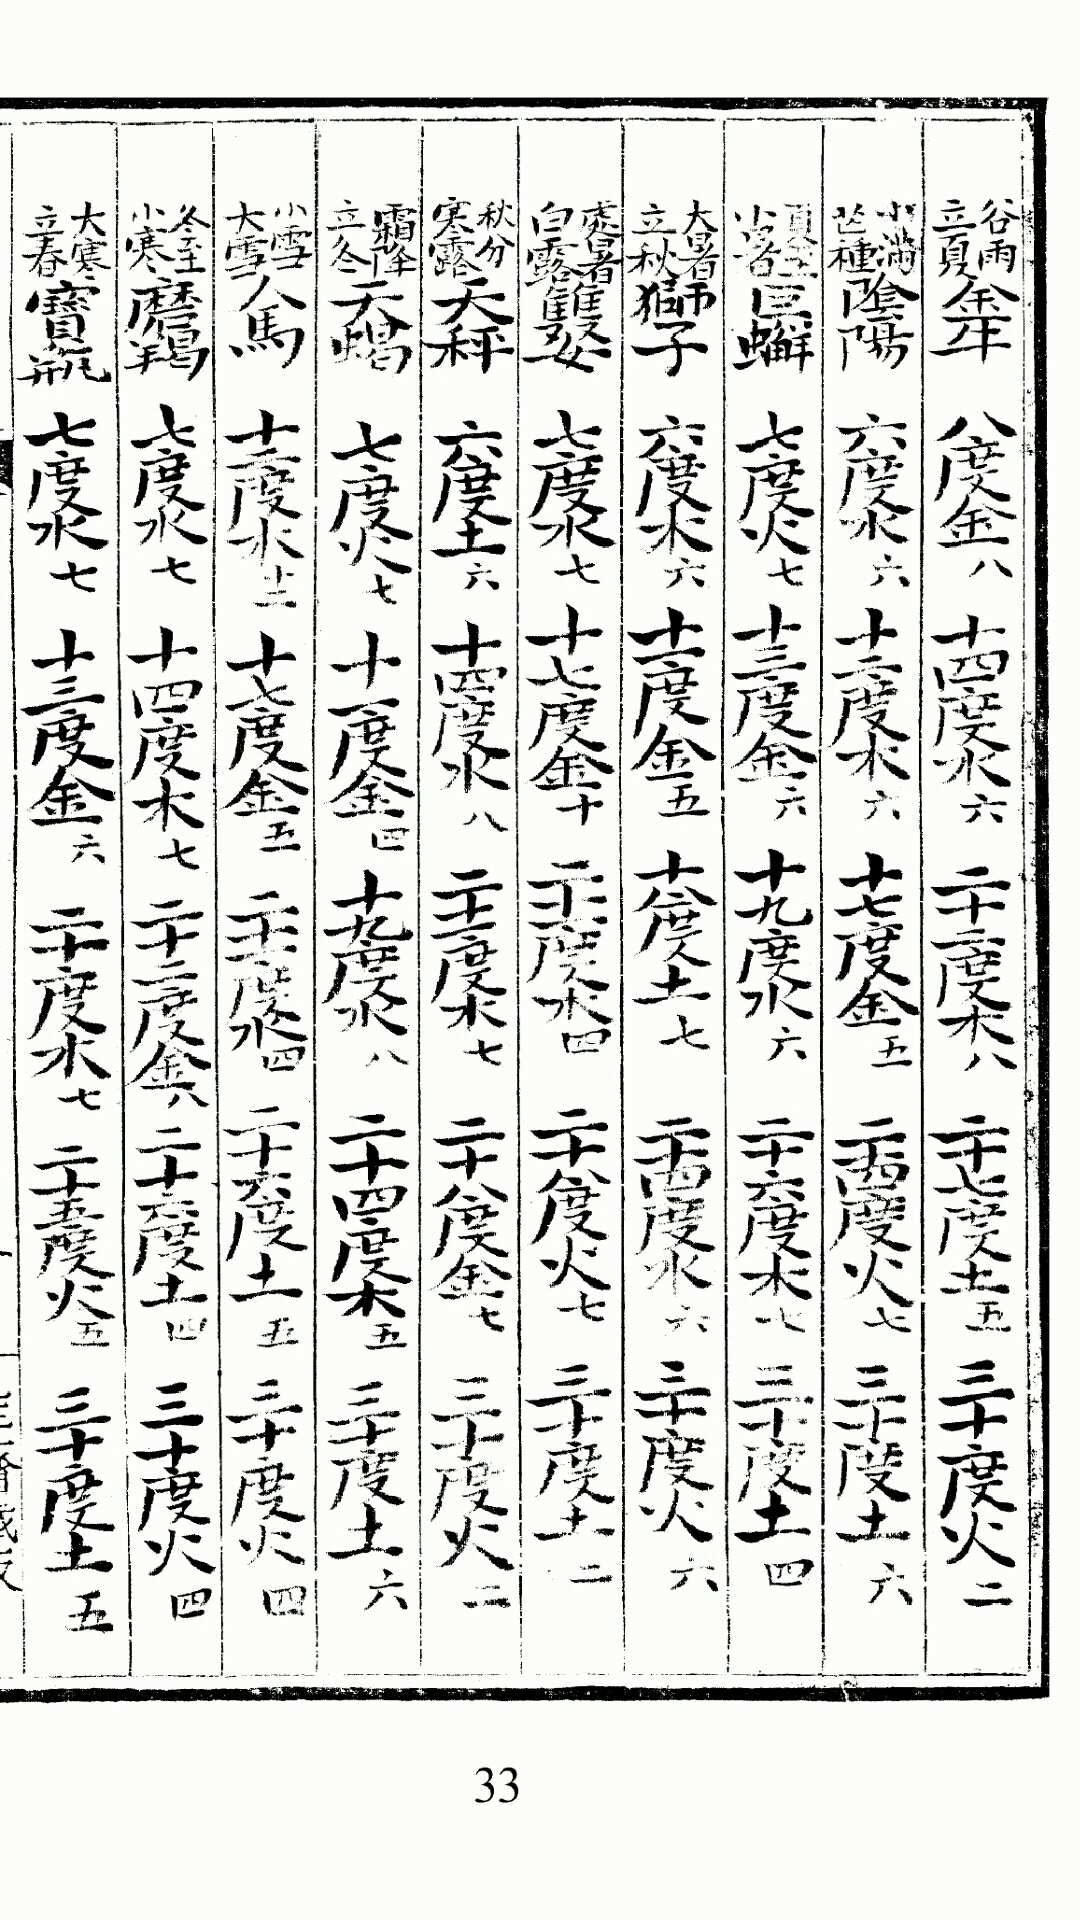 谷雨立夏金牛 八度金八 十四度水六 二十二度木八 二十七度土五 三十度火二
小滿芒種陰陽 六度水六 十二度木六 十七度金五 二十四度火七 三十度土六
夏至小暑巨蠏 七度火七 十三度金六 十九度水六 二十六度木七 三十度土四
大暑立秋獅子 六度木六 十一度金五 十八度土七 二十四度水六 三十度火六
處暑白露雙女 七度水七 十七度金十 二十一度木四 二十八度火七 三十度土二
秋分寒露天秤 六度土六 十四度水八 二十一度木七 二十八度金七 三十度火二
霜降立冬天蝎 七度火七 十一度金四 十九度水八 二十四度木五 三十度土六
小雪大雪人馬 十二度木十二 十七度金五 二十一度水四 二十六度土五 三十度火四
冬至小寒磨羯 七度水七 十四度木七 二十二度金八 二十六度土四 三十度火四
大寒立春寶瓶 七度水七 十三度金六 二十度木七 二十五度火五 三十度土五
33